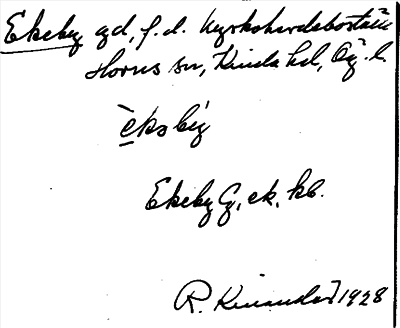 Ekeby gd, f.d. kyrkoherdeboställe
Horns sn, Kinda hd, Ög. l.
èkəbý
Ekeby G, ek, kb.
R. Kinander 1928